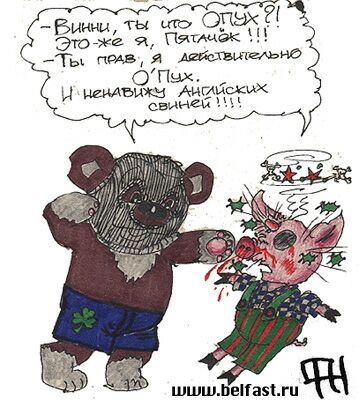 - Винни, ты что ОПУХ?!
Это-же я, Пятачок!!!
- Ты прав, я действительно
О'Пух.
И ненавижу Английских
свиней!!!!
www.belfast.ru